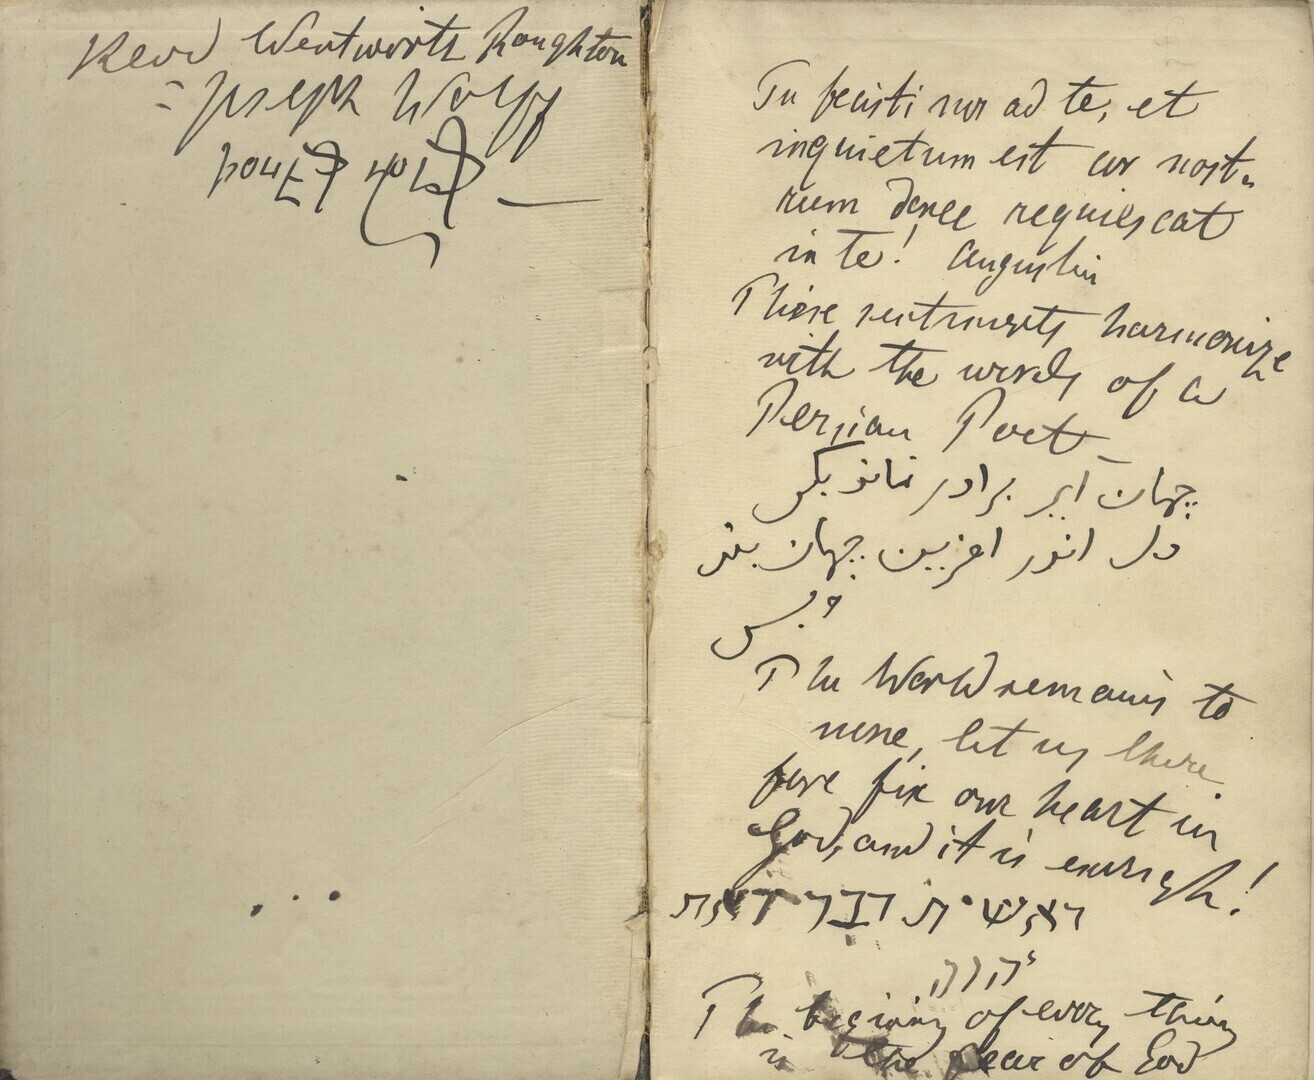 Revd Wentworth Roughton
= Joseph Wolff
Tu fecisti nos ad te, et
inquietum est cor nost=
rum donec requiescat
in te! Augustin
These sentiments harmonize
with the words of a
Persian Poet
جهان آی برادر نماند بکس
دل اندر افرین جهان بند
و بس
The World remains to
none, let us there
fore fix our heart in
God, and it is enough!
ראשית דבר יראת
יהוה
The begining of every thing
is the fear of God